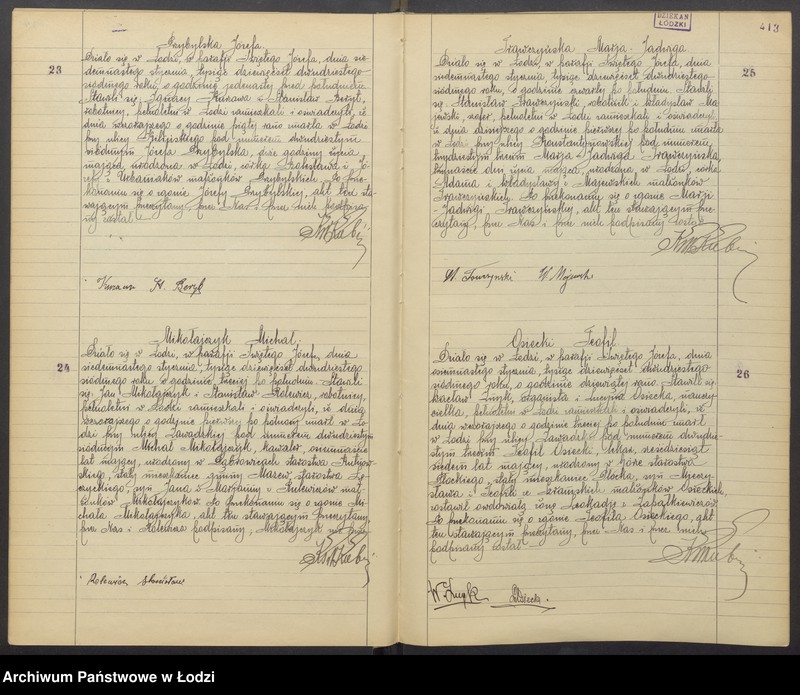 Przybylska Józefa.
23
Działo się w Łodzi, w parafji Świętego Józefa, dnia sie-
demnastego stycznia, tysiąc dziewięćset dwudziestego
siódmego roku, o godzinie jedenastej przed południem.
Stawili się: Ignacy i Stanisław Beryt,
robotnicy, pełnoletni w Łodzi zamieszkali i oświadczyli, iż
dnia wczorajszego o godzinie piątej rano zmarła w Łodzi
przy ulicy pod numerem dwudziestym
siódmym Józefa Przybylska, dwie godziny życia
mająca, urodzona w Łodzi, córka Bolesława i Jó-
zefy z Urbaniaków małżonków Przybylskich. Po prze-
konaniu się o zgonie Józefy Przybylskiej, akt ten sta-
wającym przeczytany, przez Nas i przez nich podpisa-
ny został.
St. Beryt
Mikołajczyk Michał.
24
Działo się w Łodzi, w parafji Świętego Józefa, dnia
siedemnastego stycznia, tysiąc dziewięćset dwudziestego
siódmego roku, o godzinie trzeciej po południu. Stawili
się: Jan Mikołajczyk i Stanisław Rolewicz, robotnicy,
pełnoletni w Łodzi zamieszkali i oświadczyli, iż dnia
wczorajszego o godzinie pierwszej po północy zmarł w Ło-
dzi przy ulicy Zawadzkiej pod numerem dwudziestym
siódmym Michał Mikołajczyk, kawaler, osiemnaście
lat mający, urodzony w starostwa Kutnow-
skiego, stały mieszkaniec gminy Mazew, starostwa Łę-
czyckiego, syn Jana i Marjanny z małż-
onków Mikołajczyków. Po przekonaniu się o zgonie Mi-
chała Mikołajczyka, akt ten stawającym przeczytany,
przez Nas i Rolewicza podpisany; Mikołajczyk nie pisze.
Rolewicz Stanisław
DZIEKAN
ŁÓDZKI
413
Trawczyńska Marja-Jadwiga
25
Działo się w Łodzi, w parafji Świętego Józefa, dnia
siedemnastego stycznia, tysiąc dziewięćset dwudziestego
siódmego roku, o godzinie czwartej po południu. Stawili
się: Stanisław Trawczyński, robotnik i Władysław Ma-
jewski, szofer, pełnoletni w Łodzi zamieszkali i oświadczyli,
iż dnia dzisiejszego o godzinie pierwszej po południu zmarła
w Łodzi przy ulicy Konstantynowskiej pod numerem
trzecim Marja-Jadwiga Trawczyńska,
dni życia mająca, urodzona w Łodzi, córka
Adama i Władysławy z Majewskich małżonków
Trawczyńskich. Po przekonaniu się o zgonie Marji-
Jadwigi Trawczyńskiej, akt ten stawającym prze-
czytany, przez Nas i przez nich podpisany został.
Osiecki Teofil
26
Działo się w Łodzi, w parafji Świętego Józefa, dnia
osiemnastego stycznia, tysiąc dziewięćset dwudziestego
siódmego roku, o godzinie dziewiątej rano. Stawili się:
Wacław Żmyk, i Lucyna Osiecka, nauczy-
cielka, pełnoletni w Łodzi zamieszkali i oświadczyli, iż
dnia wczorajszego o godzinie trzeciej po południu zmarł
w Łodzi przy ulicy Zawadzkiej pod numerem dwudzie-
stym trzecim Teofil Osiecki, lekarz, siedemdziesiąt
siedem lat mający, urodzony w starostwa
Płockiego, stały mieszkaniec Płocka, syn Mieczy-
sława i Teofili z małżonków Osieckich,
zostawił owdowiałą żonę Leokadję z
Po przekonaniu się o zgonie Teofila Osieckiego, akt
ten stawającym przeczytany, przez Nas i przez nich
podpisany został.
W. Żmyk L. Osiecka.
Archiwum Państwowe w Łodzi